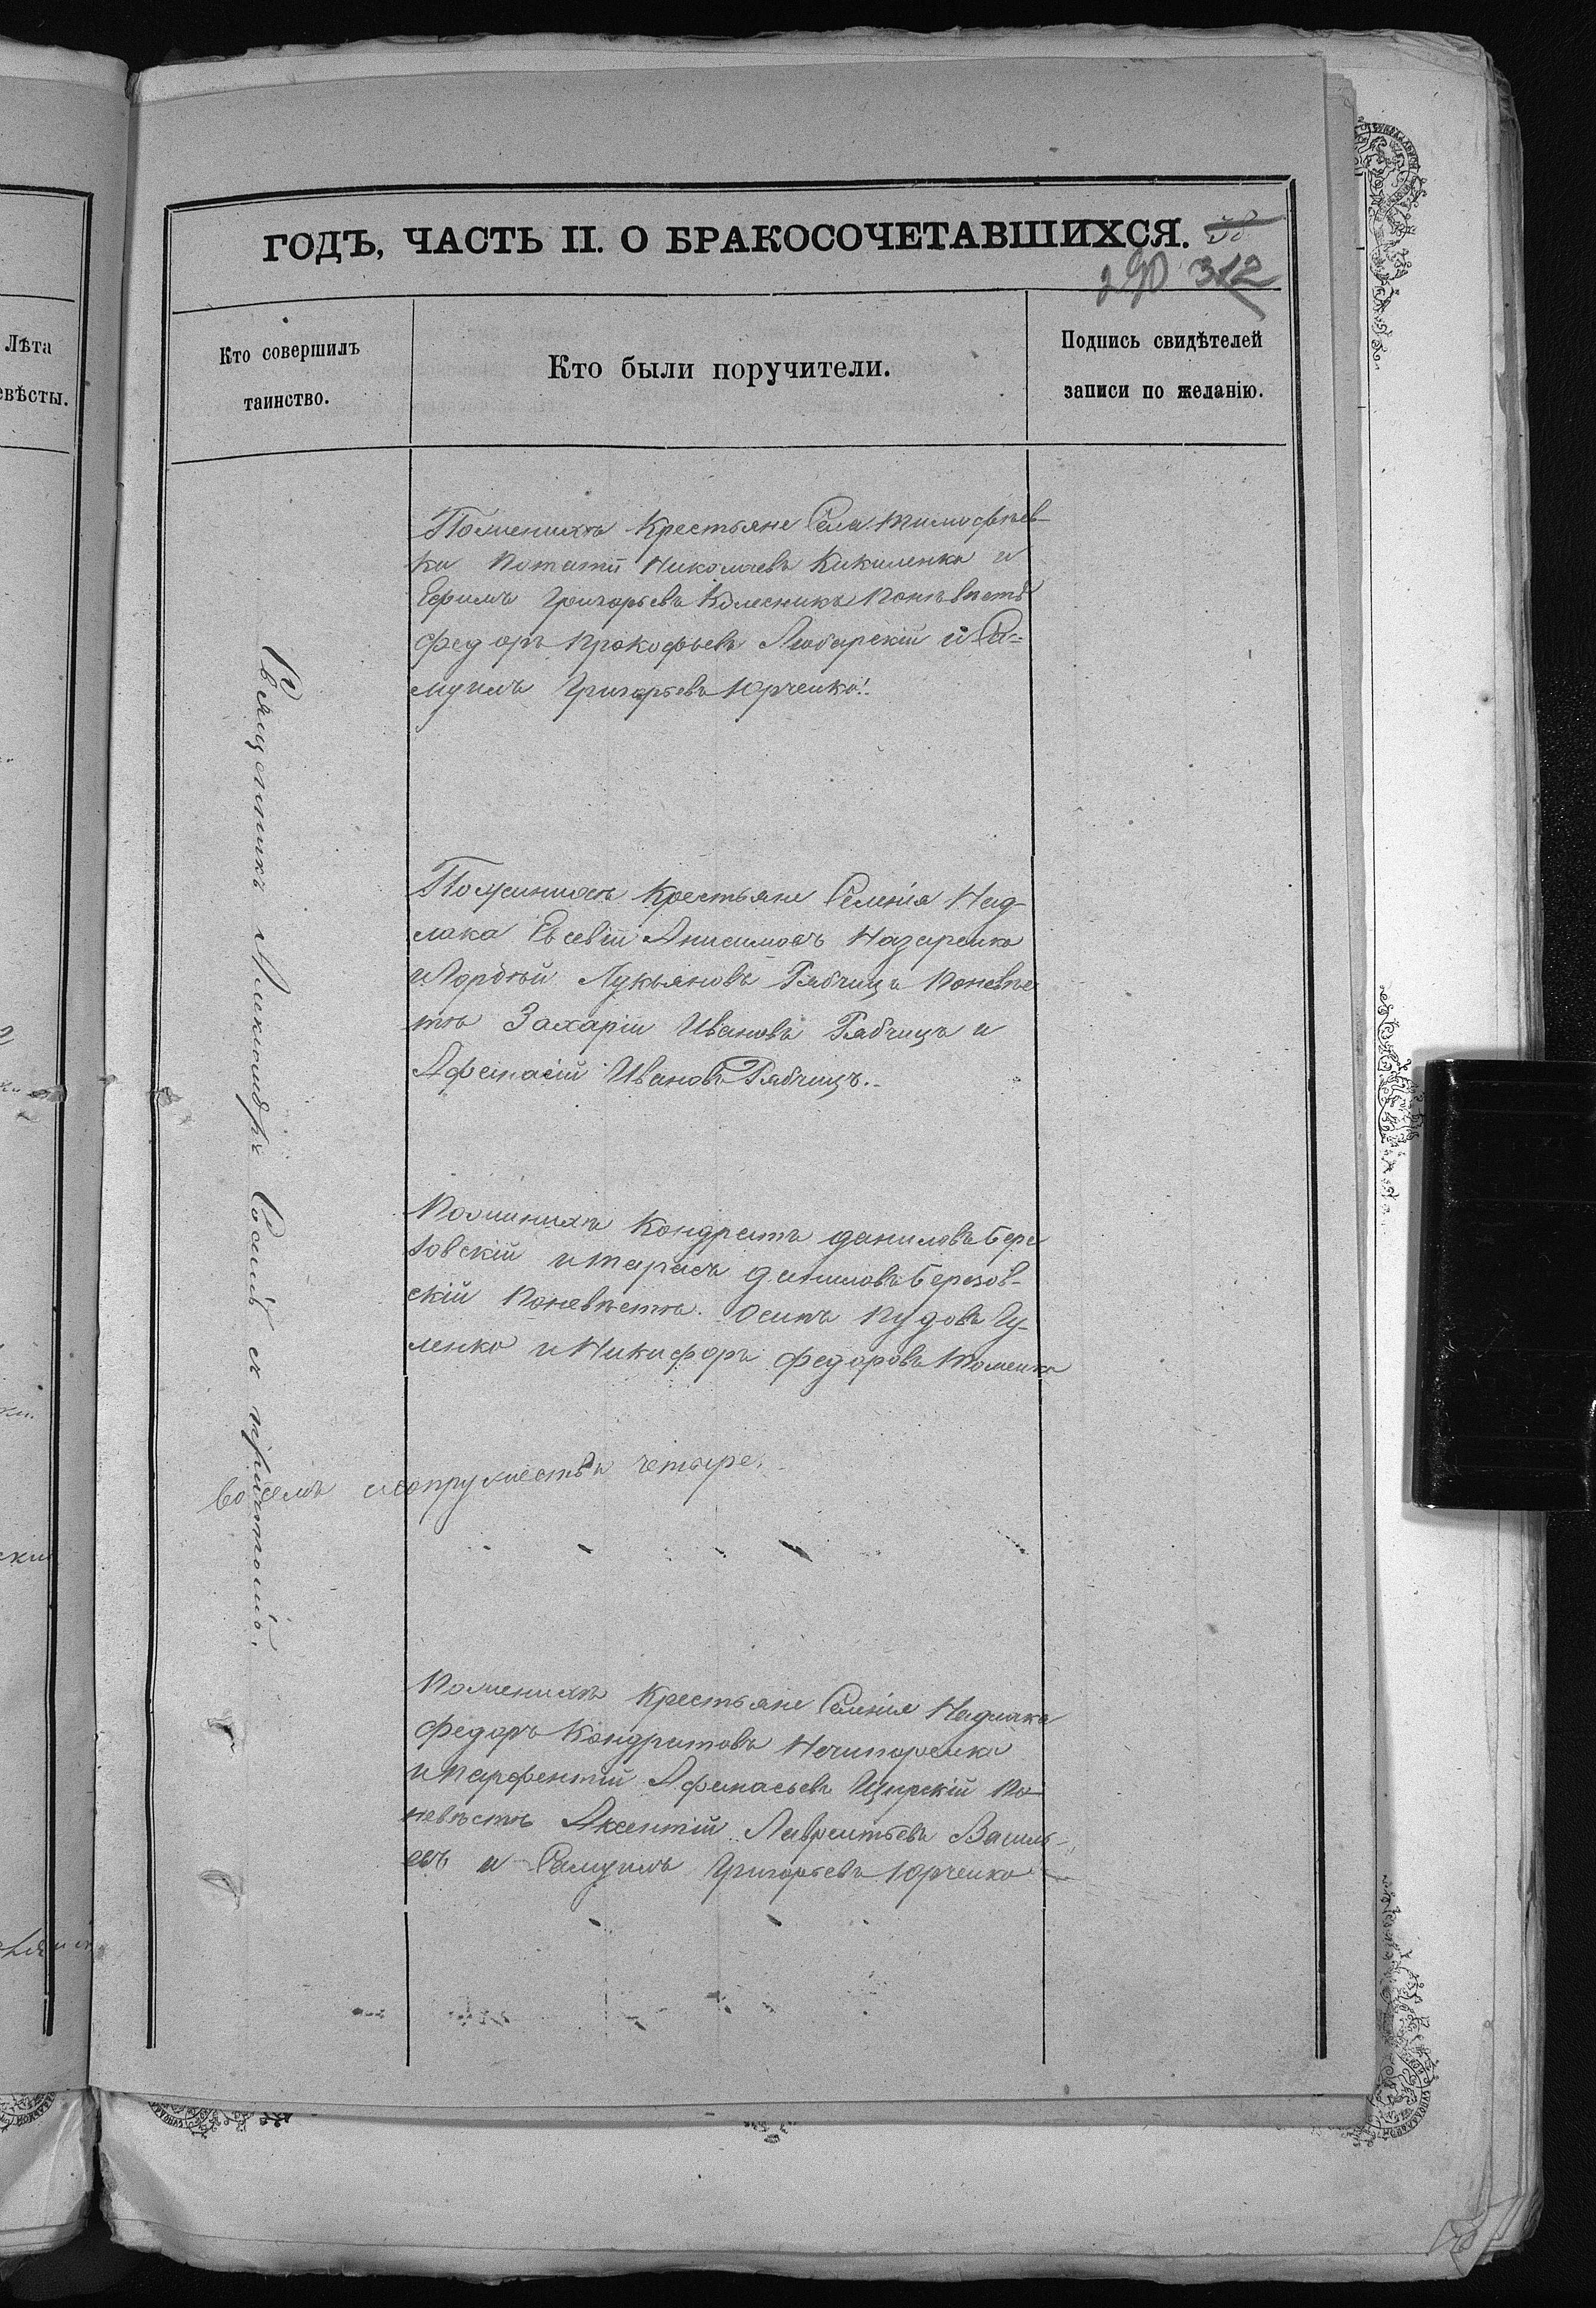 ГОДЪ, ЧАСТЬ II. О БРАКОСОЧЕТАВШИХСЯ.
290 312
Лѣта
евѣсты.
Кто совершилъ
таинство.
Кто были поручители.
Подпись свидѣтелей
записи по желанію.
Священникъ Александръ съ причтомъ.
Поженихѣ Крестьяне Села Тимофѣев-
ки Потапій Николаевъ Кикиленко и
Ефимъ Григорьевъ Колесникъ Поневѣстѣ
Федоръ Прокофьевъ Любарскій и Са=
муилъ Григорьевъ Юрченко.
Поженихѣ Крестьяне Селенія Над-
лака Евсевій Анисимовъ Назаренко
и Лукьяновъ Рябчицъ Поневѣс
тѣ Захарій Ивановъ Рябчицъ и
Афанасій Ивановъ Рябчицъ.
Поженихѣ Кондратъ Даниловъ Бере
зовскій и Тарасъ Даниловъ Березов-
скій Поневѣстѣ. Осипъ Пудовъ Гу-
ленко и Никифоръ Федоровъ Томенко
восемъ супружествъ четыре.
Поженихѣ Крестьяне Селенія Надлака
Федоръ Кондратовъ Нечипоренко
и Парфентій Афанасьевъ Щирскій По
невѣстѣ Аксентій Лаврентьевъ Василь-
евъ и Самуилъ Григорьевъ Юрченко